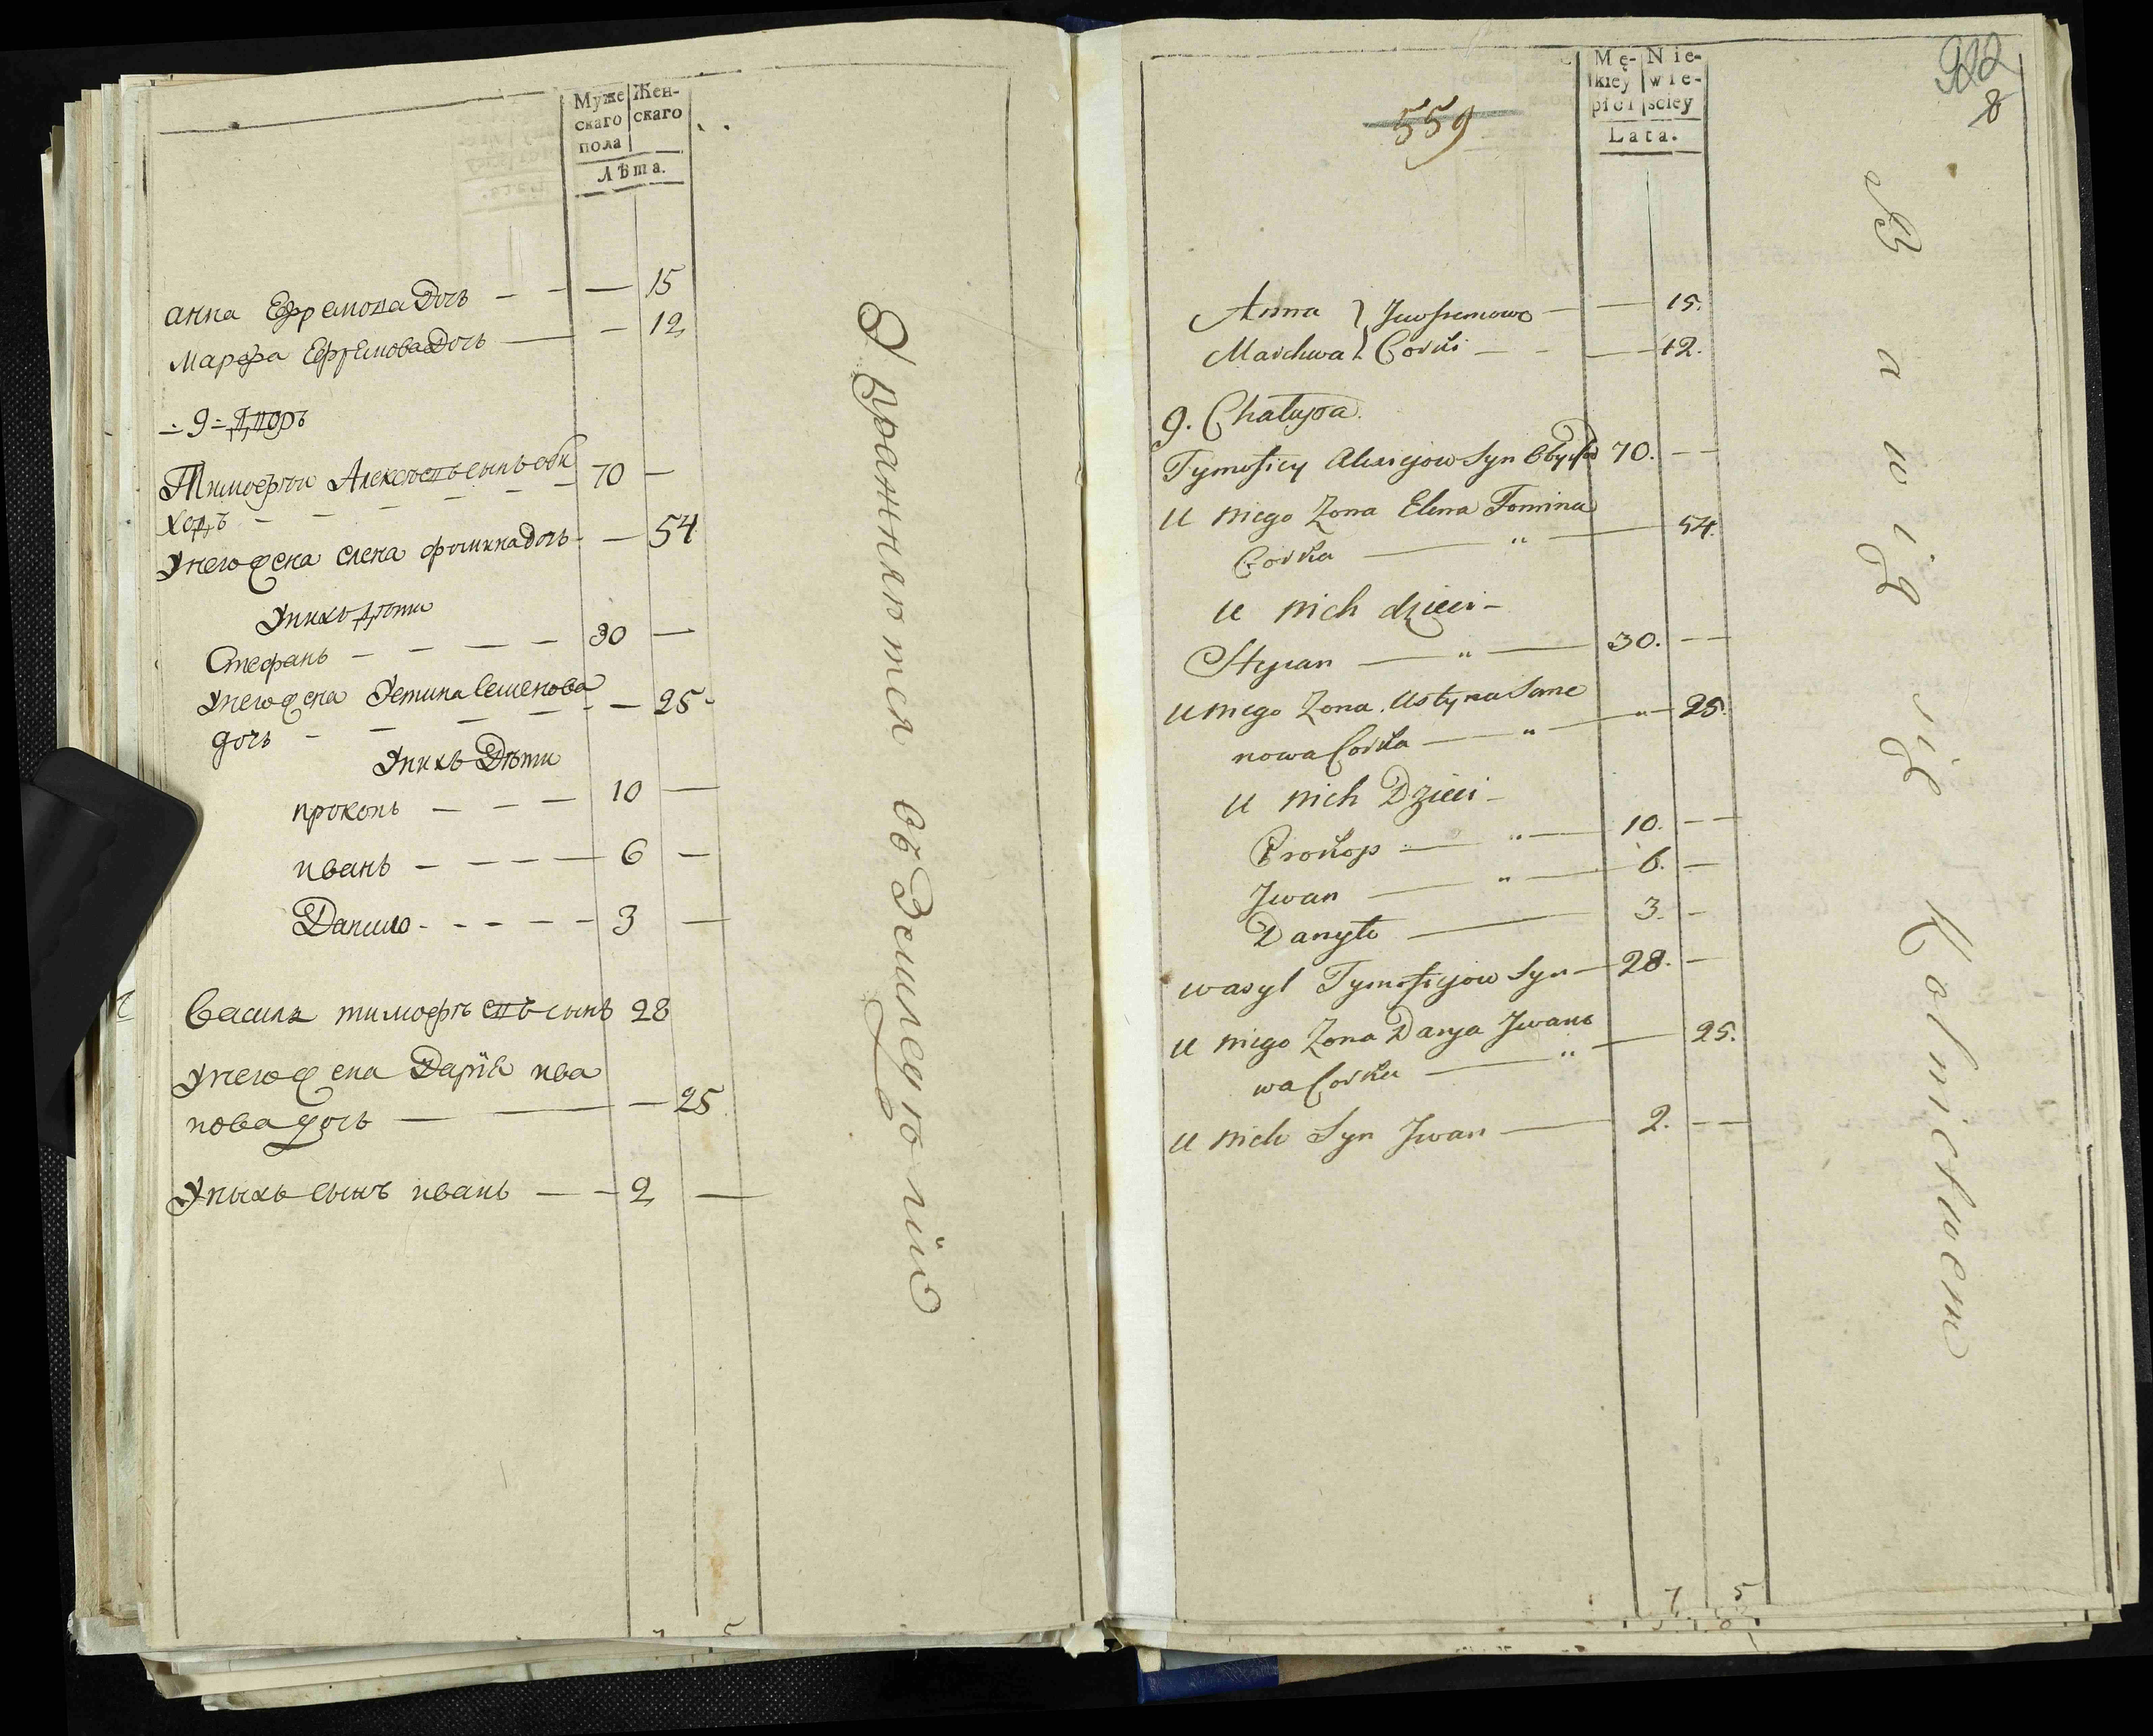 Муже Жен-
скаго скаго
пола
Лѣта.
анна Ефремова Дочь — — — 15
Марѳа Ефремова Дочь — — 12
9 Дворъ
Тимоѳѣи Алексѣевъ сынъ оби 70 —
ходъ — — — — —
Унего жена елена фомина дочь — — 54
Унихъ дѣти
Стефанъ — — — — 30 —
Унего жена Устина Семенова
дочь — — — — — — 25
Унихъ Дѣти
прокопъ — — — 10 —
иванъ — — — — 6 —
Данило — — — — 3 —
Василь тимофѣевъ сынъ 28
Унего жена Дарія ива
нова дочь — — — 25
Унихъ сынъ иванъ — — 2 —
Упражняются въ Земледѣліи
Mę- Nie-
skiey wie-
płci sciey
Lata.
559
922
8
Anna } Jewfremowe — — 15.
Marchwa } Corki — — — 12.
9. Chałupa.
Tymofiey Alexiejow Syn 70. — —
u niego Zona Elena Fomina
Corka — " — — 54.
u nich dzieci —
Stepan — " — 30. — —
u niego Zona Ustyna Seme
nowa Corka — " — " — 25.
u nich Dzieci —
Prokop — " — 10. — —
Jwan — " — 6. —
Danyło — 3. —
wasyl Tymofiejow Syn — 28. —
u niego Zona Darya Jwano
wa Corka — " — 25.
u nich Syn Jwan — 2. — —
7 5
Bawią się Rolnictwem